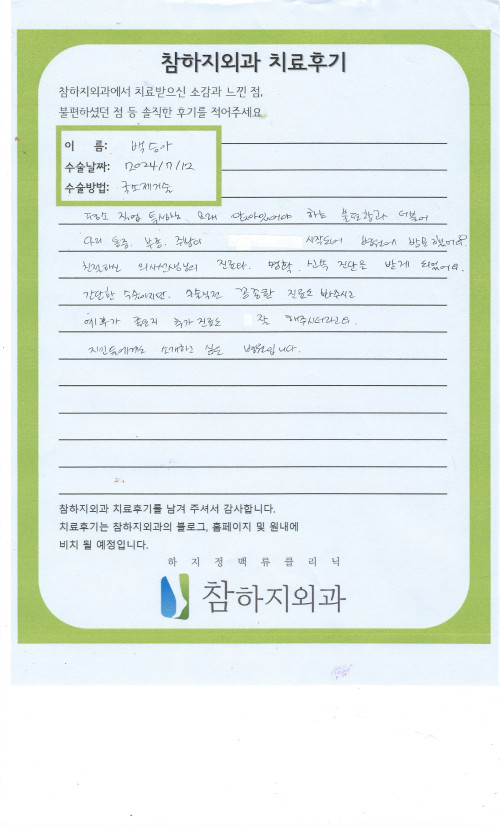 참하지외과 치료후기
참하지외과에서 치료받으신 소감과 느낀 점,
불편하셨던 점 등 솔직한 후기를 적어주세요.
이 름: 백승아
수술날짜: 2024/7/12
수술방법: 국소제거술
평소 직업 특성상 오래 앉아있어야 하는 불편함과 더불어
다리 통증, 부종, 주방이 시작되어 병원에 방문했어요.
친절하신 의사선생님의 진료다. 명확, 신속 진단을 받게 되었어요.
간단한 수술이지만, 수술직전 꼼꼼한 진료도 봐주시고
예후가 좋은지 추가 진료도 잘 해주시더라고요.
지인들에게도 소개하고 싶은 병원입니다.
참하지외과 치료후기를 남겨 주셔서 감사합니다.
치료후기는 참하지외과의 블로그, 홈페이지 및 원내에
비치 될 예정입니다.
하지정맥류클리닉
참하지외과